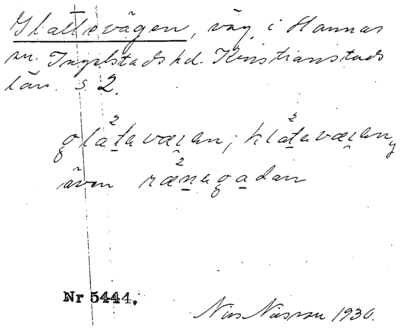 Glattevägen, väg i Hannas
sn. Ingelstads hd. Kristianstads
län. s 2.
glataværan; klataværan,
även rænegadan
Nr 5444.
Nils Nilsson 1930.